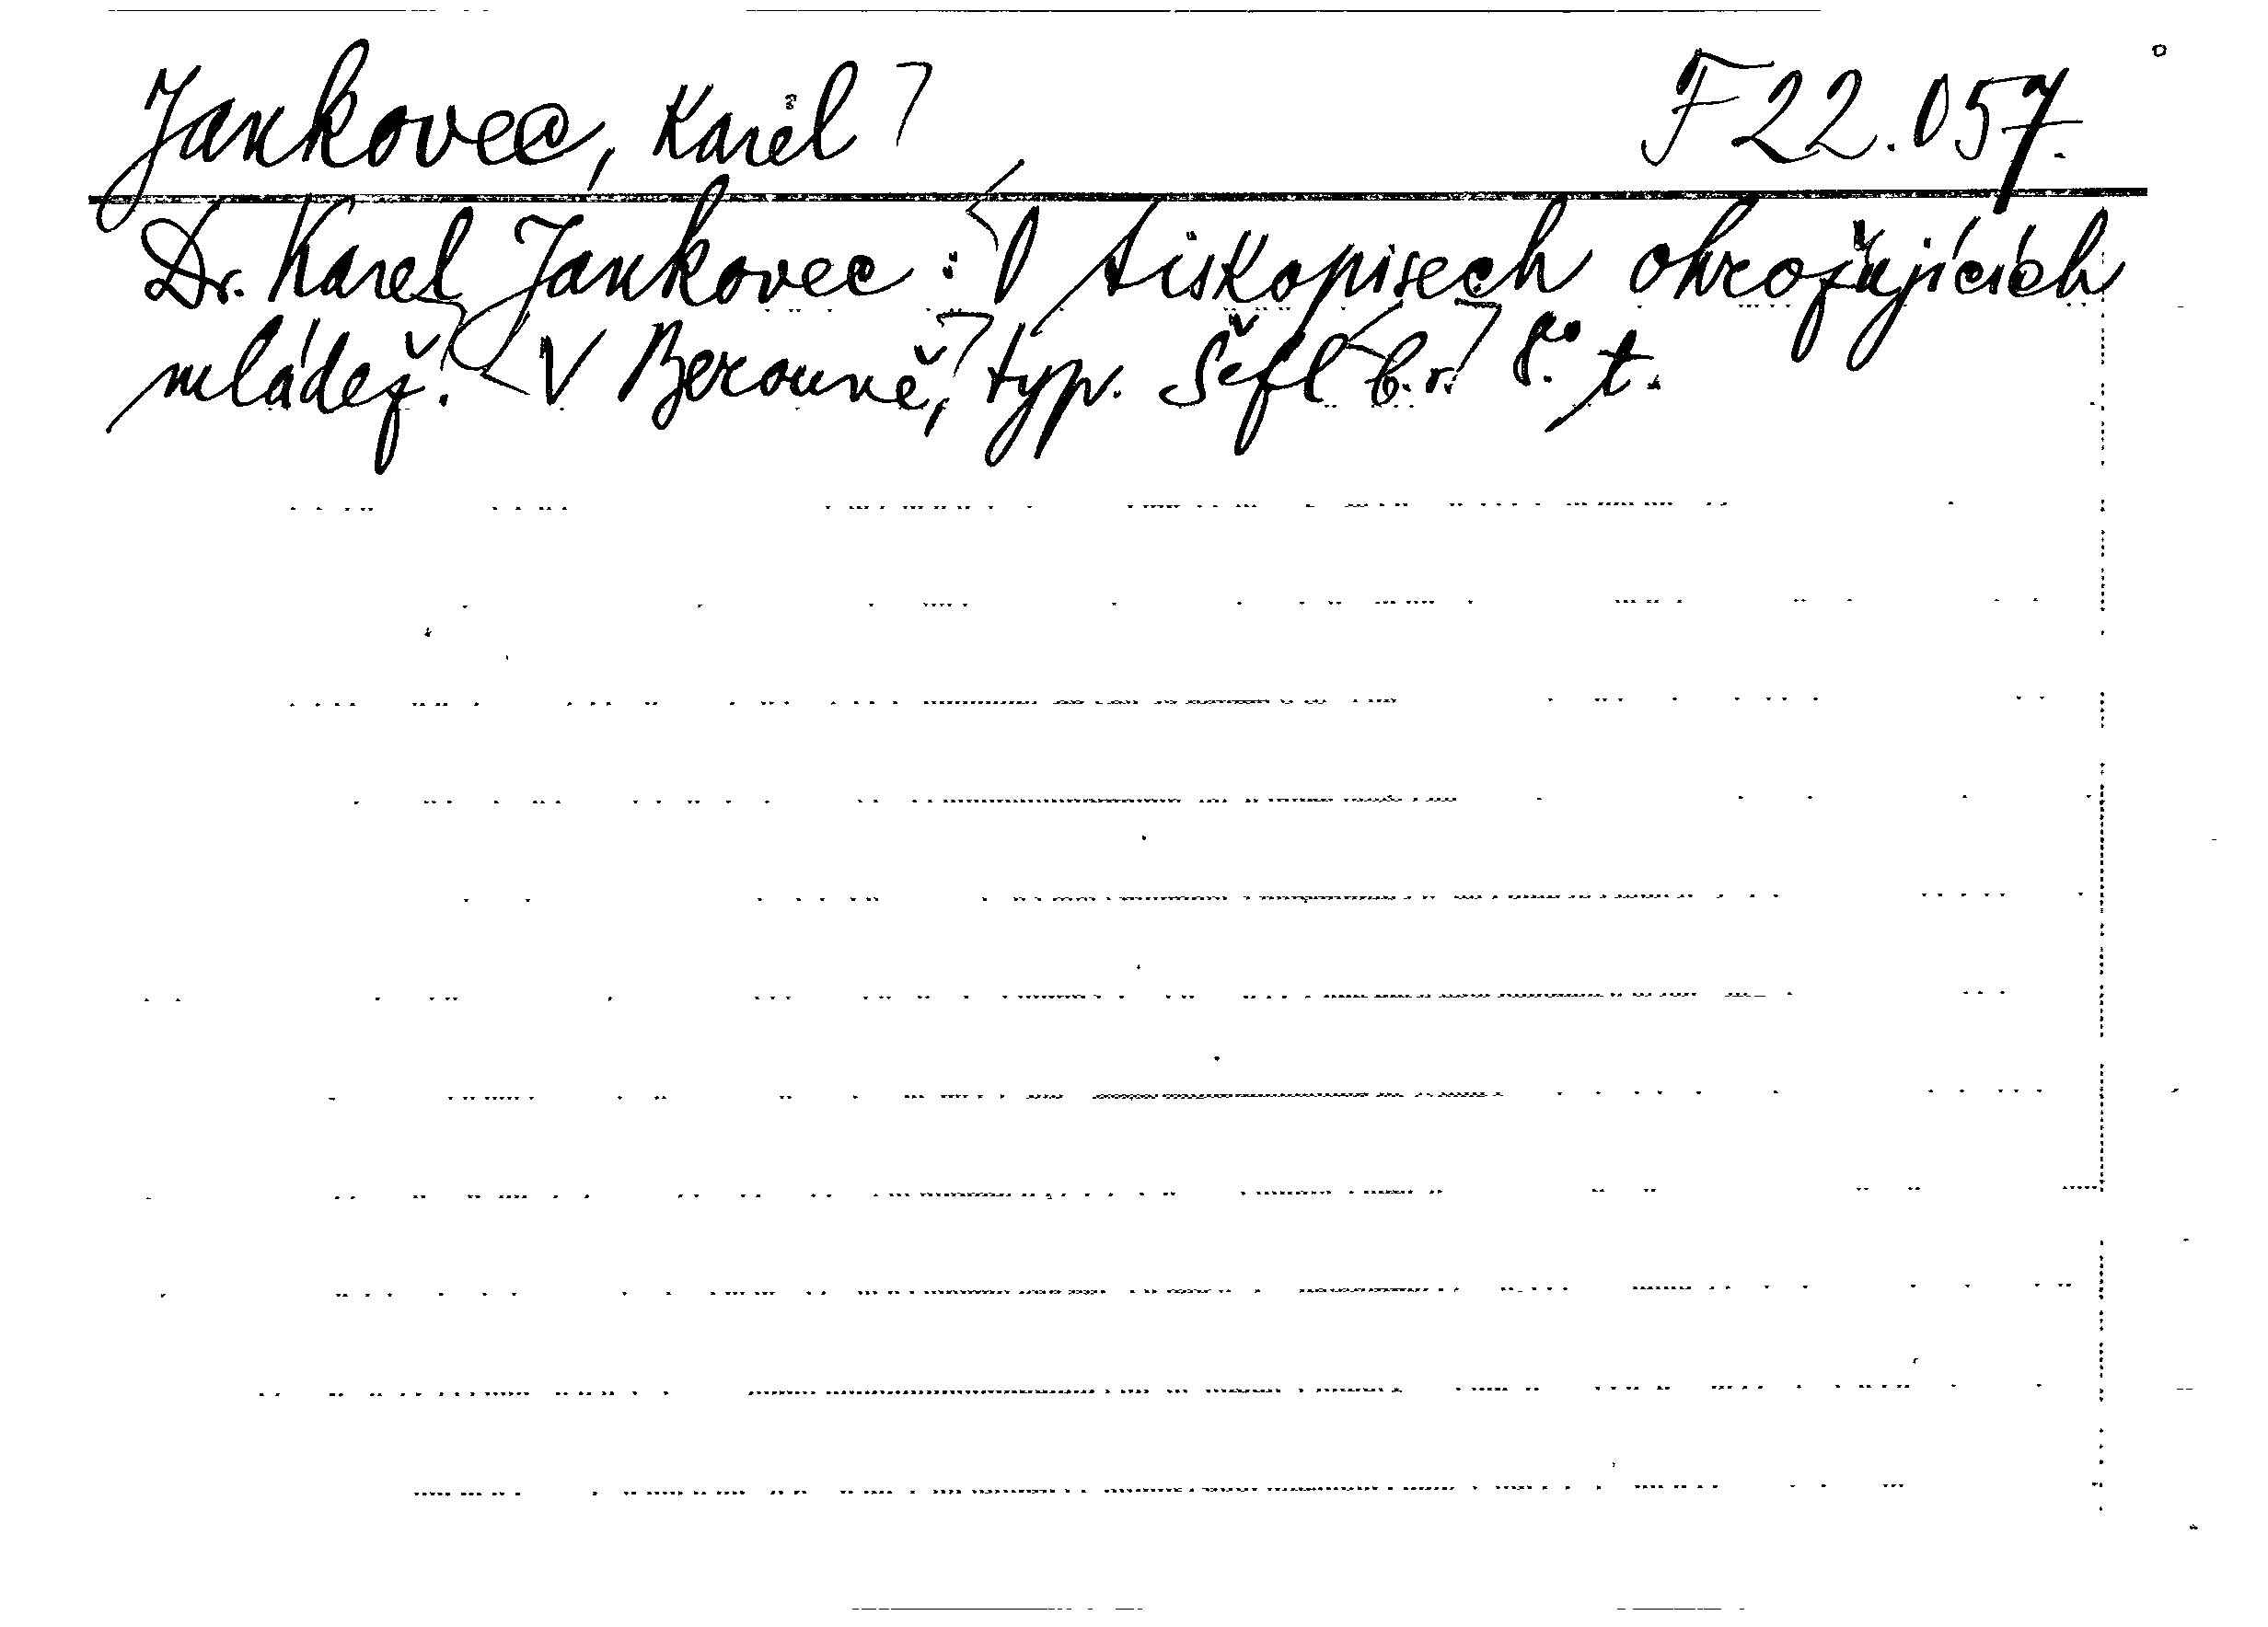 Jankovec, Karel F 22.057.
Dr. Karel Jankovec: O tiskopisech ohrožujících
mládež. V Berouně, typ. Šefl b.r. 8.° t.